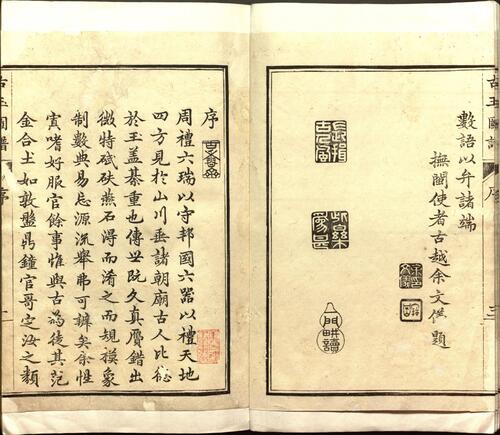 古玉圖譜 序 三
數語以弁諸端
撫閩使者古越余文儀題
序
周禮六瑞以守邦國六器以禮天地
四方見於山川垂諸朝廟古人比德
於玉蓋綦重也傳世既久真贋錯出
微特砥砆燕石溷而淆之而規模象
制數典易忌源流舉弗可辨矣余性
寅嗜好服官餘事惟與古為後其范
金合土如敦盤鼎鐘官哥定汝之類
古玉圖譜 序 一